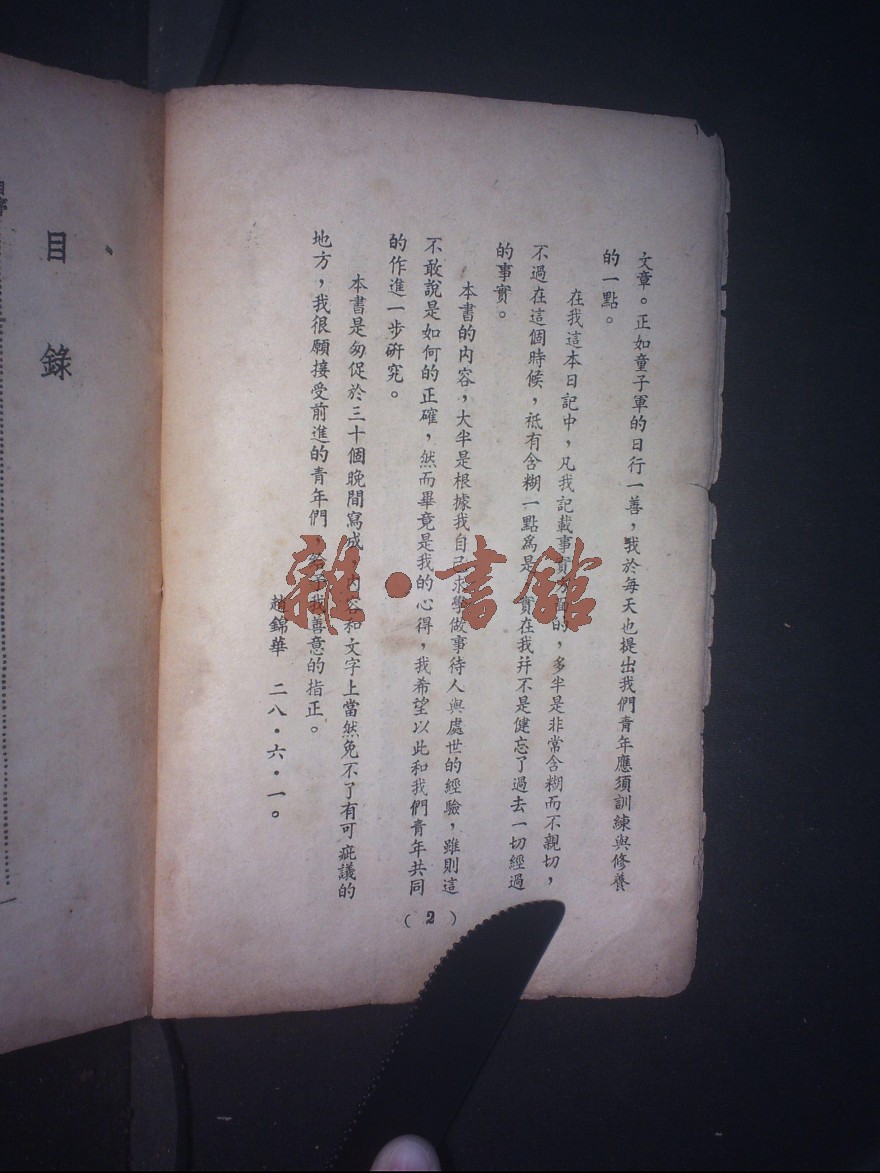 文章。正如童子軍的日行一善，我於每天也提出我們青年應須訓練與修養
的一點。
在我這本日記中，凡我記載事實方面的，多半是非常含糊而不親切，
不過在這個時候，祇有含糊一點爲是，實在我幷不是健忘了過去一切經過
的事實。
本書的內容，大半是根據我自己求學做事待人與處世的經驗，雖則這
不敢說是如何的正確，然而畢竟是我的心得，我希望以此和我們青年共同
的作進一步硏究。
本書是匆促於三十個晚間寫成，內容和文字上當然免不了有可疵議的
地方，我很願接受前進的青年們，給予我善意的指正。
趙錦華　二八・六・一。
(2)
目錄
雜・書館